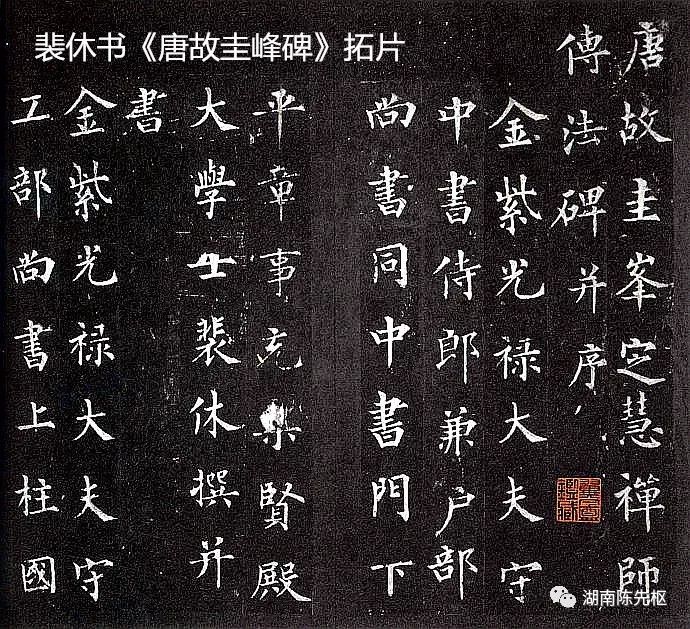 裴休书《唐故圭峰碑》拓片
唐故圭峯定慧禪師
傳法碑并序
金紫光禄大夫守
中書侍郎兼户部
尚書同中書門下
平章事充集賢殿
大學士裴休撰并
書
金紫光禄大夫守
工部尚書上柱國
湖南陈先枢